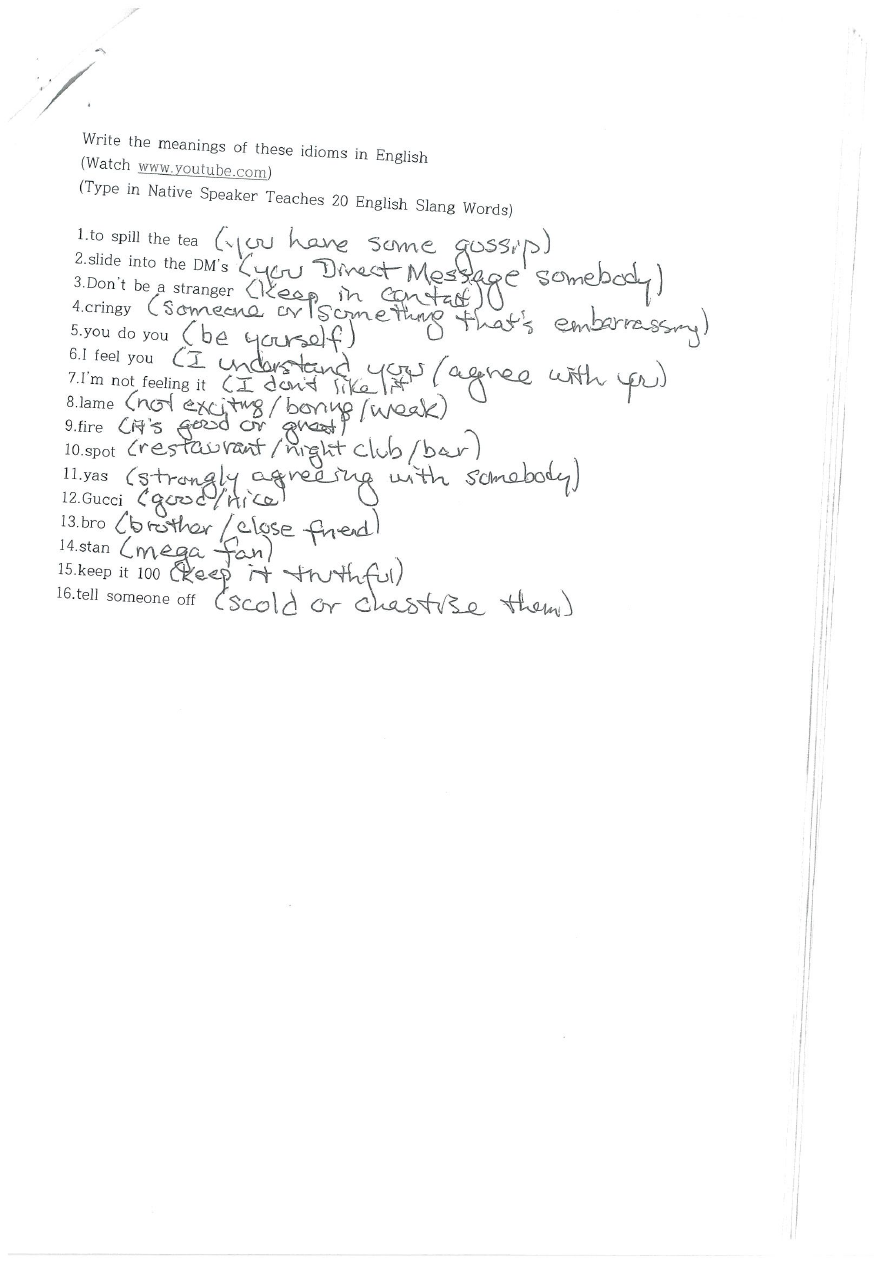 Write the meanings of these idioms in English
(Watch www.youtube.com)
(Type in Native Speaker Teaches 20 English Slang Words)
1.to spill the tea (you have some gossip)
2.slide into the DM's (you Direct Message somebody)
3.Don't be a stranger (keep in contact)
4.cringy (someone or something that's embarrassing)
5.you do you (be yourself)
6.I feel you (I understand you/agree with you)
7.I'm not feeling it (I don't like it
8.lame (not exciting/boring/weak)
9.fire (it's good or great)
10.spot (restaurant/night club/bar)
11.yas (strongly agreeing with somebody)
12.Gucci (good/nice)
13.bro (brother/close friend)
14.stan (mega fan)
15.keep it 100 (keep it truthful)
16.tell someone off (scold or chastise them)